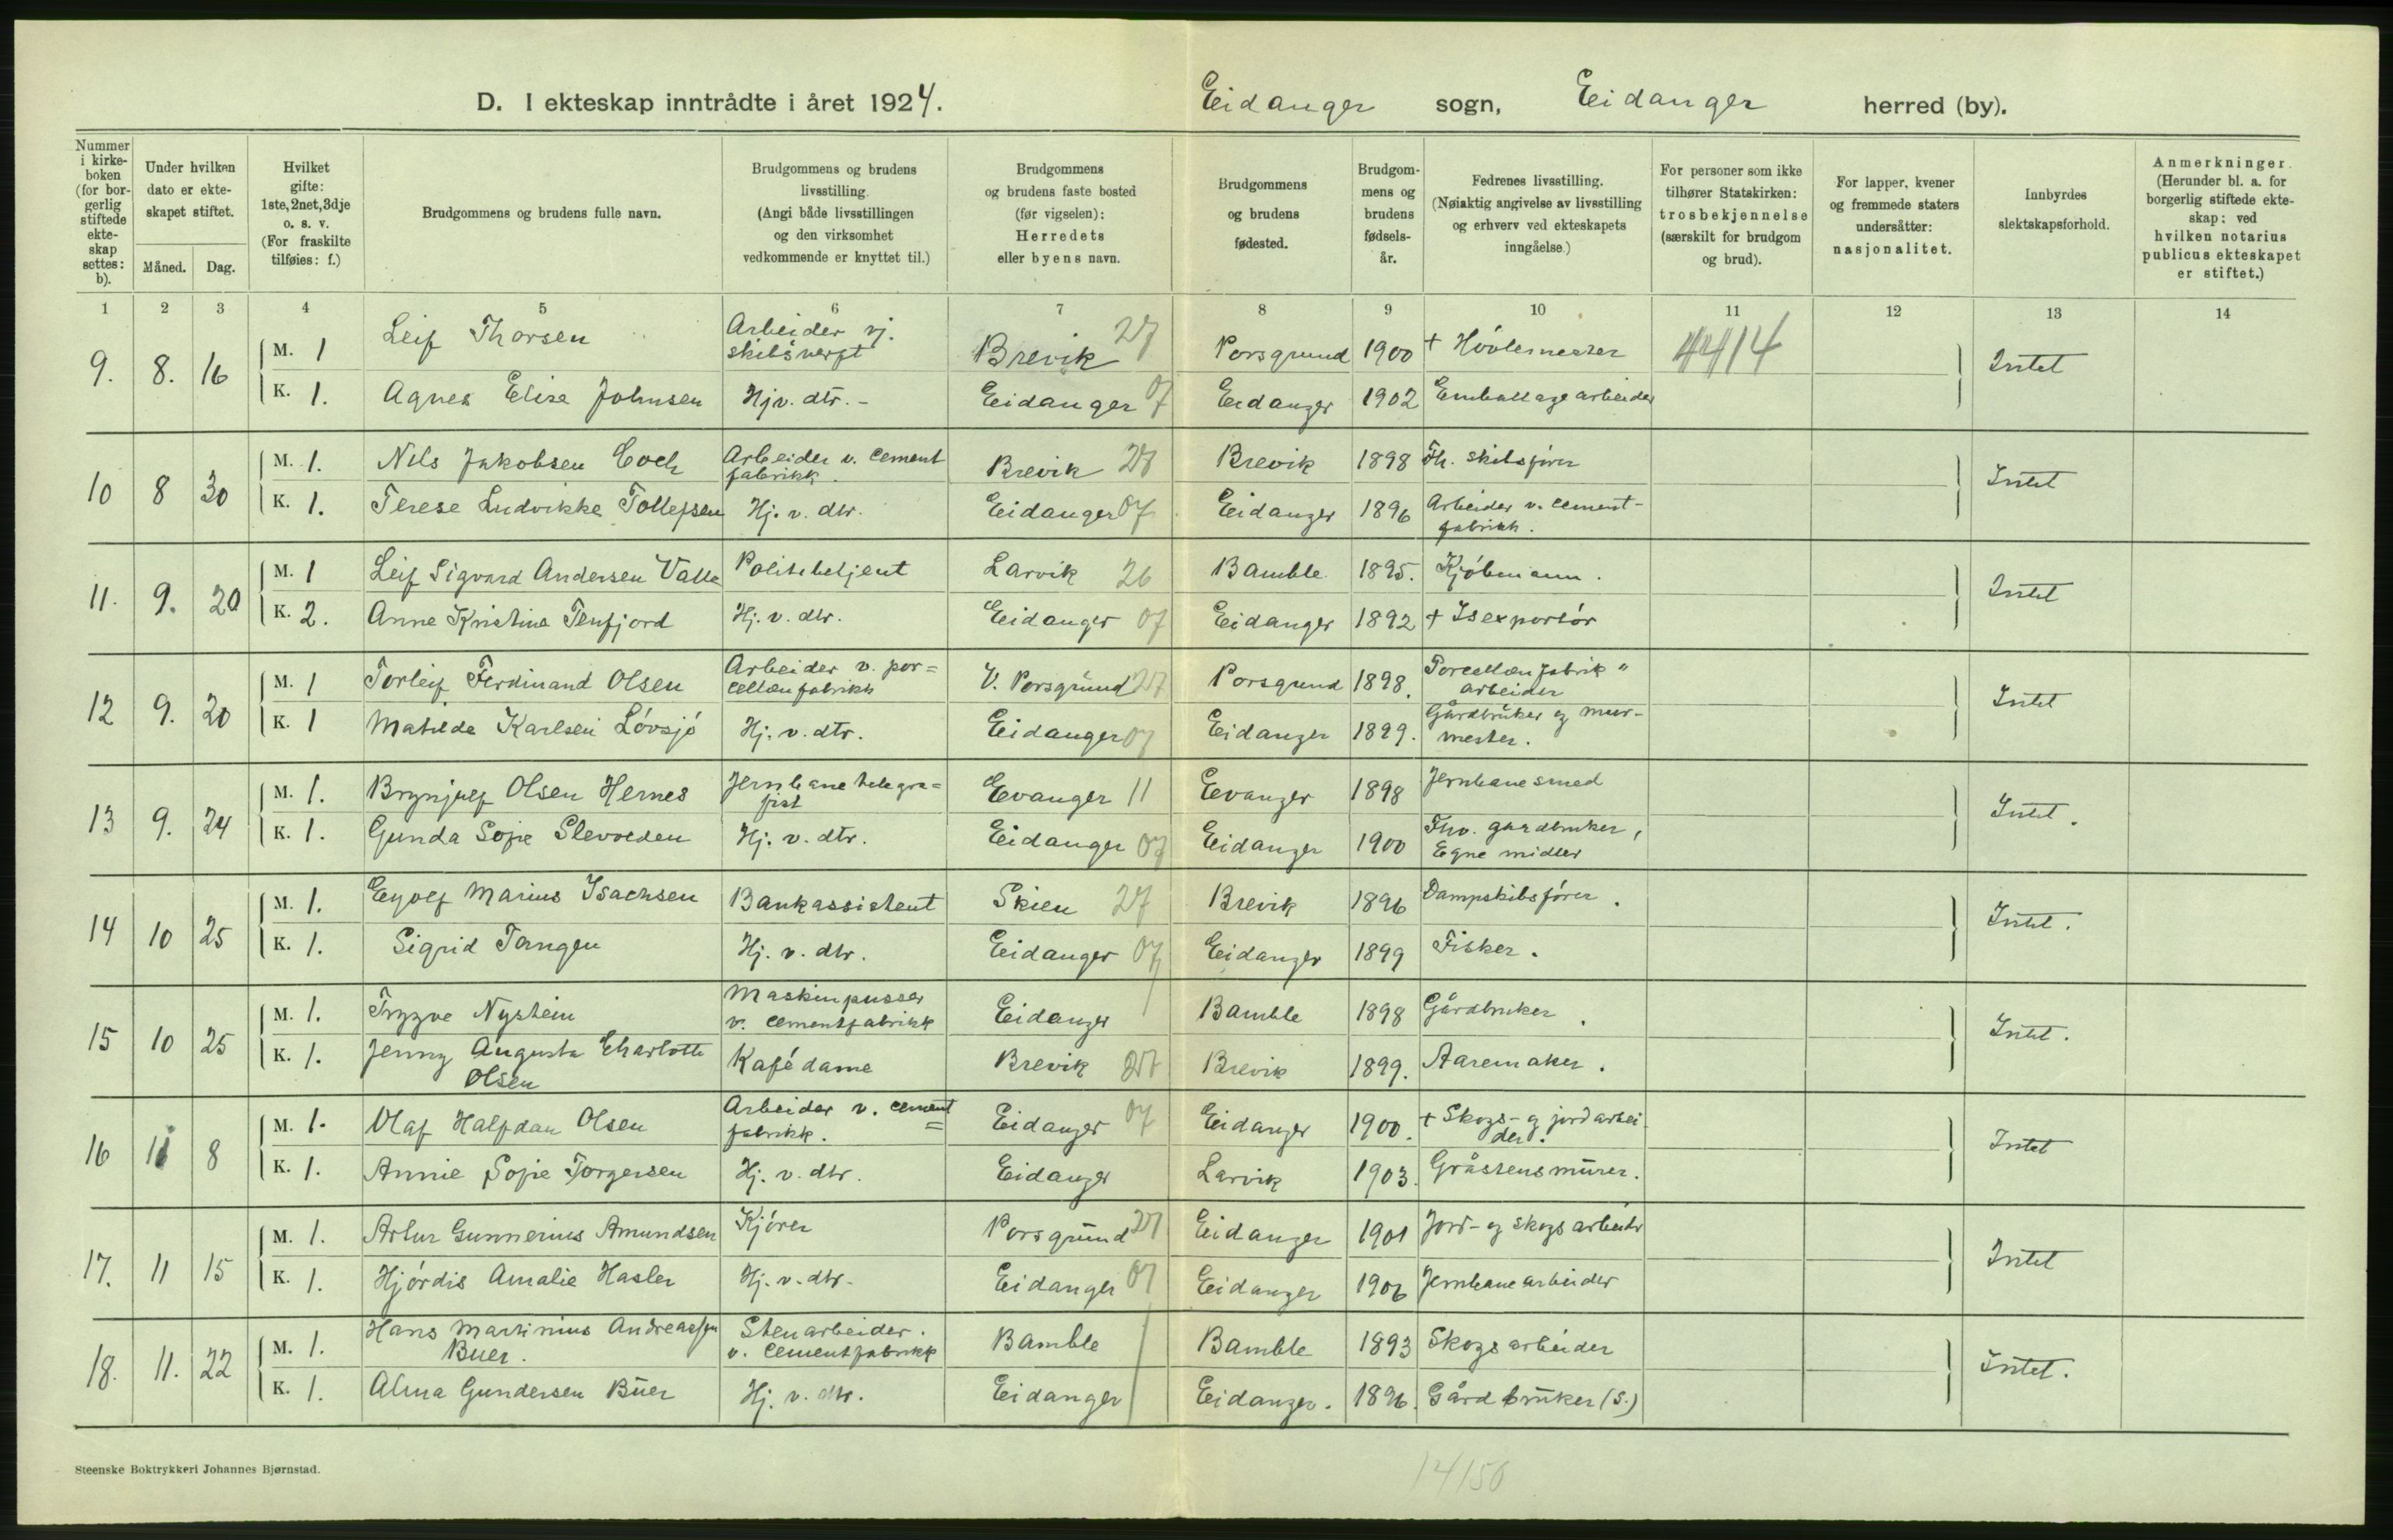 D. I ekteskap inntrådte i året 1924. Eidanger sogn, Eidanger herred (by).
Nummer i kirkeboken (for borgerlig stiftede ekteskap settes: b).
Under hvilken dato er ekteskapet stiftet.
Måned. Dag.
Hvilket gifte: 1ste, 2net, 3dje o. s. v. (For fraskilte tilføies: f.)
Brudgommens og brudens fulle navn.
Brudgommens og brudens livsstilling. (Angi både livsstillingen og den virksomhet vedkommende er knyttet til.)
Brudgommens og brudens faste bosted (før vigselen): Herredets eller byens navn.
Brudgommens og brudens fødested.
Brudgommens og brudens fødselsår.
Fedrenes livsstilling. (Nøiaktig angivelse av livsstilling og erhverv ved ekteskapets inngåelse.)
For personer som ikke tilhører Statskirken: trosbekjennelse (særskilt for brudgom og brud).
For lapper, kvener og fremmede staters undersåtter: nasjonalitet.
Innbyrdes slektskapsforhold.
Anmerkninger. (Herunder bl. a. for borgerlig stiftede ekteskap: ved hvilken notarius publicus ekteskapet er stiftet.)
1 2 3 4 5 6 7 8 9 10 11 12 13 14
9. 8. 16 M. 1 Leif Thorsen Arbeider vj. skibsvergt Brevik 27 Porsgrund 1900 + Hövlemester 4414 Intet
K. 1. Agnes Elise Johnsen Hjv. dtr. - Eidanger 07 Eidanger 1902 Emballagearbeider
10 8 30 M. 1. Nils Jakobsen Coch Arbeider v. cement fabrikk. Brevik 27 Brevik 1898 Fh. skibsförer Intet
K. 1. Terese Ludvikke Tollefsen Hj. v. dtr. Eidanger 07 Eidanger 1896 Arbeider v. cement- fabrikk.
11. 9. 20 M. 1 Leif Sigvard Andersen Valle Politibetjent Larvik 26 Bamble 1895. Kjöbmann. Intet
K. 2. Anne Kristine Tenfjord Hj. v. dtr. Eidanger 07 Eidanger 1892 + Isexportör
12 9. 20 M. 1 Torleif Ferdinand Olsen Arbeider v. por= cellænfabrikk V. Porsgrund 27 Porsgrund 1898. Porcellænfabrik " arbeider Intet
K. 1 Matilde Karlsen Lövsjö Hj. v. dtr. Eidanger 07 Eidanger 1899. Gårdbruker og mur- mester.
13 9. 24 M. 1. Brynjulf Olsen Hernes Jernbanetelegra= fist Evanger 11 Evanger 1898 Jernbanesmed Intet.
K. 1. Gunda Sofie Slevolden Hj. v. dtr. Eidanger 07 Eidanger 1900 Fhv. gaardbruker, Egne midler
14 10 25 M. 1. Eyolf Marius Isachsen Bankassistent Skien 27 Brevik 1896 Dampskibsförer. Intet.
K. 1. Sigrid Tangen Hj. v. dtr. Eidanger 07 Eidanger 1899 Fisker.
15 10 25 M. 1. Tryggve Nystein Maskinpusser v. cementfabrikk Eidanger Bamble 1898 Gårdbruker. Intet.
K. 1. Jenny Augusta Charlotte Olsen Kafédame Brevik 27 Brevik 1899. Aaremaker.
16 11 8 M. 1. Olaf Halfdan Olsen Arbeider v. cement= fabrikk. Eidanger 07 Eidanger 1900. + Skogs- og jordarbei- der. Intet
K. 1. Annie Sofie Torgersen Hj. v. dtr. Eidanger Larvik 1903. Gråstensmurer.
17. 11 15 M. 1. Artur Gunnerius Amundsen Kjörer Porsgrund 27 Eidanger 1901 Jord- og skogsarbeider Intet
K. 1. Hjördis Amalie Hasler Hj. v. dtr. Eidanger 07 Eidanger 1906 Jernbanearbeider
18. 11. 22 M. 1. Hans Martinius Andreassen Buer. Stenarbeider. v. cementfabrikk Bamble Bamble 1893 Skogsarbeider Intet.
K. 1. Alma Gundersen Buer Hj. v. dtr. Eidanger Eidanger. 1896. Gårdbruker (S.)
Steenske Boktrykkeri Johannes Bjørnstad.
14150